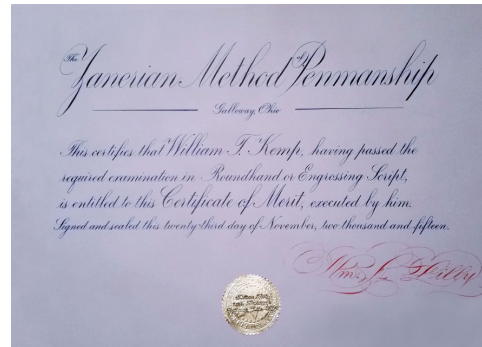 The Zanerian Method of Penmanship
Galloway, Ohio
This certifies that William T. Kemp, having passed the
required examination in Roundhand or Engrossing Script,
is entitled to this Certificate of Merit, executed by him.
Signed and sealed this twenty-third day of November, two thousand and fifteen.